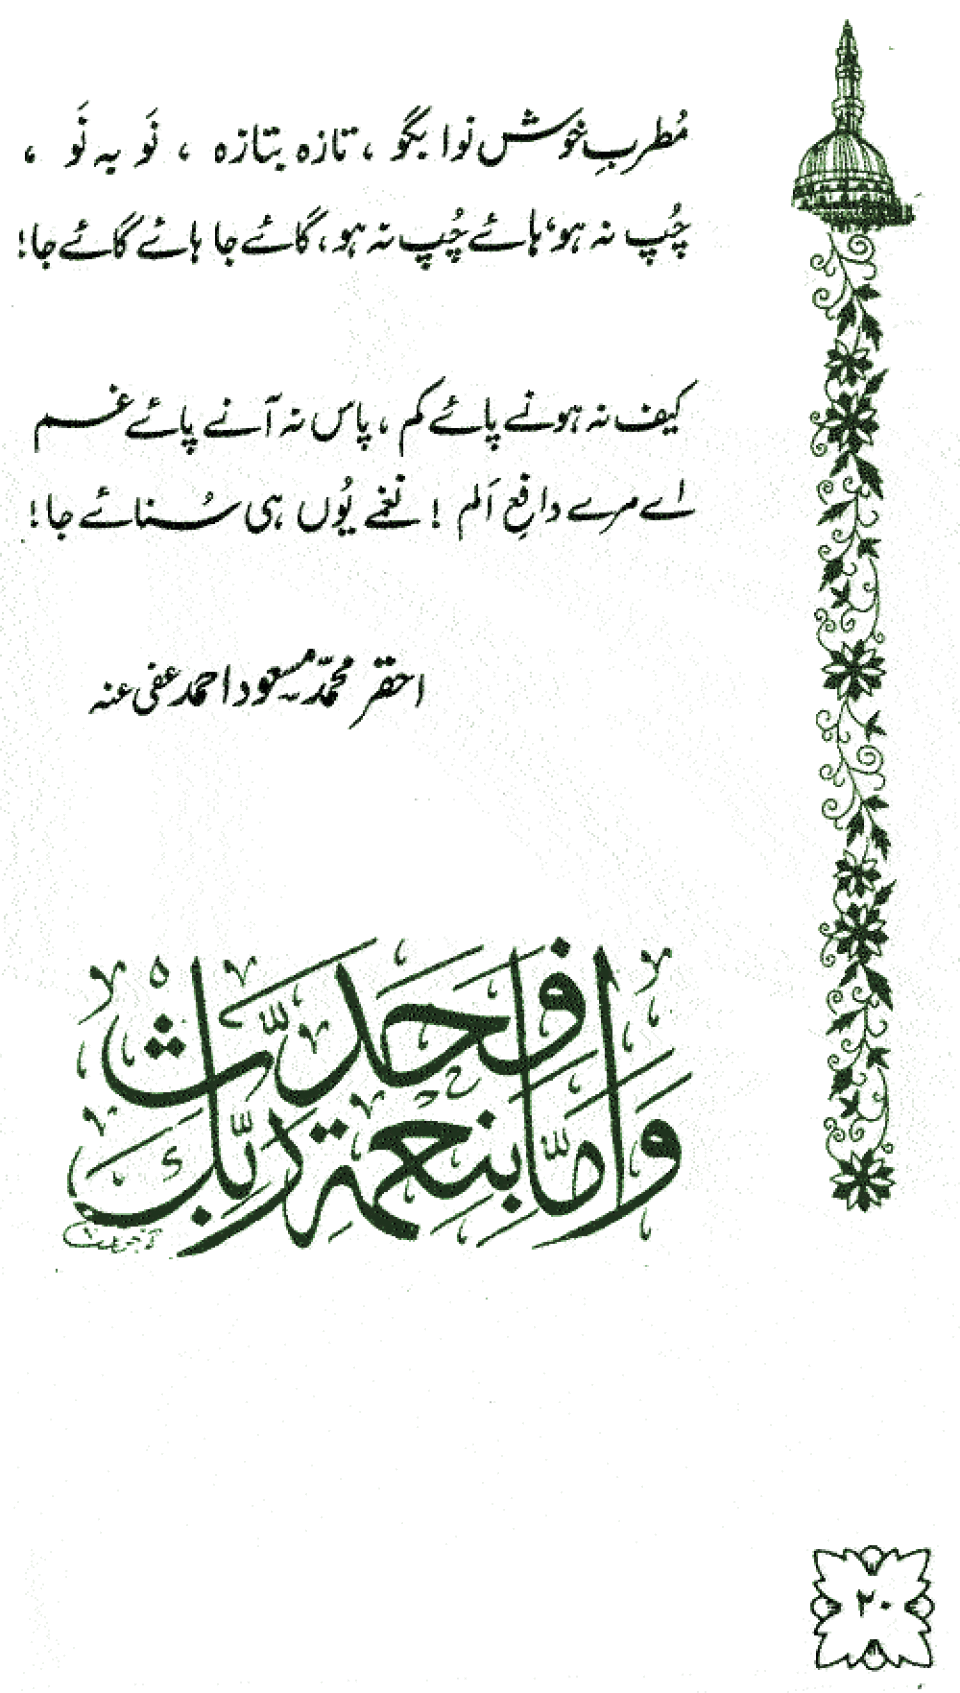 مُطربِ خوش نوا بگو ، تازہ بتازہ ، نَو بہ نَو ،
چُپ نہ ہو، ہائے چُپ نہ ہو، گائے جا ہائے گائے جا!
کیف نہ ہونے پائے کم ، پاس نہ آنے پائے غم
اے مرے دافعِ اَلم ! نغمے یُوں ہی سُنائے جا!
احقر محمّد مسعود احمد عفی عنہ
وَاَمَّا بِنِعْمَةِ رَبِّكَ فَحَدِّثْ
۲۰